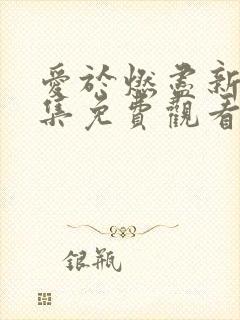 愛於燃盡新
集免費觀看
銀瓶